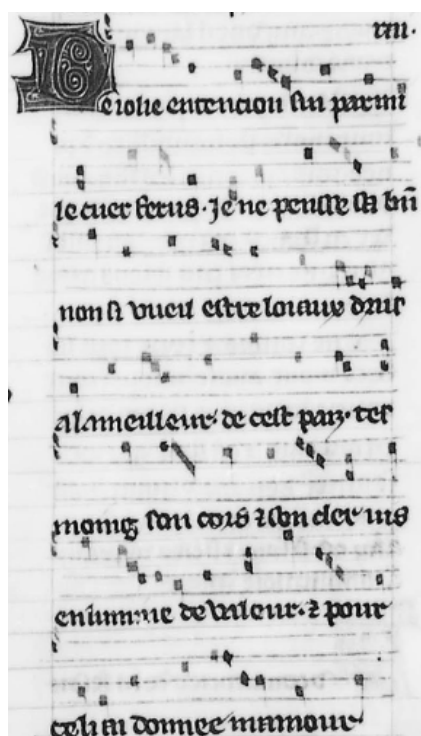 viii.
De iolie entencion sui parmi
le cuer ferus. Je ne pensse se biē
non si vueil estre loiaux drus
a la meilleur de cest païz. tes
moing son cors ⁊ son cler vis
enlumine de valeur. ⁊ pour
celi ai donnee mamour